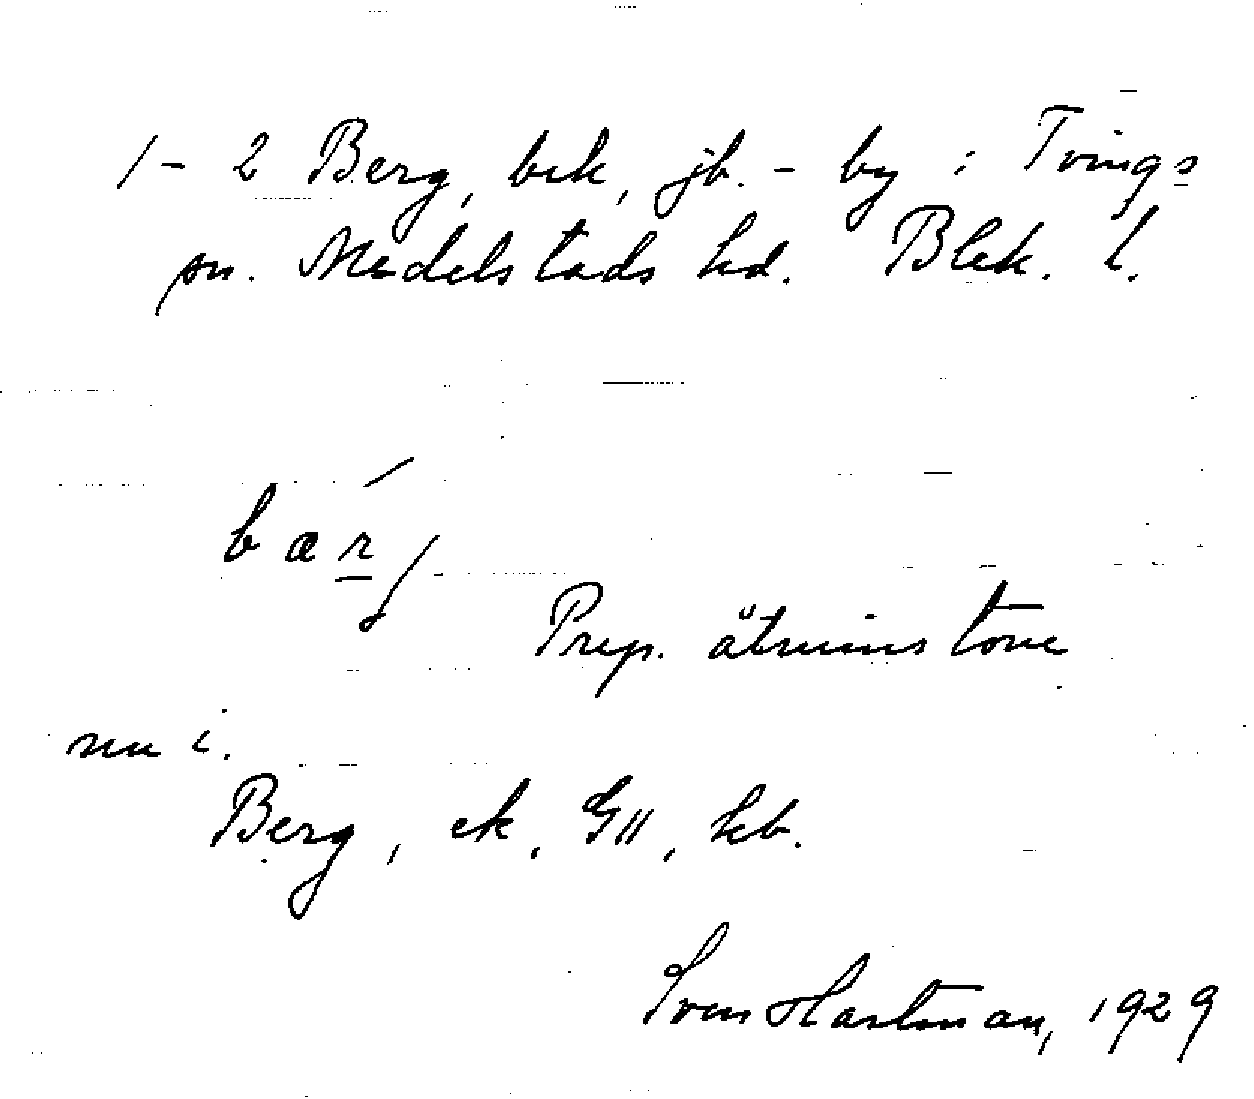 1-2 Berg, bek, jb. - by i Tvings
sn. Medelstads hd. Blek. l.
bærj
Prep. åtminstone
nu i.
Berg, ek, GII, hb.
Sven Hartman, 1929